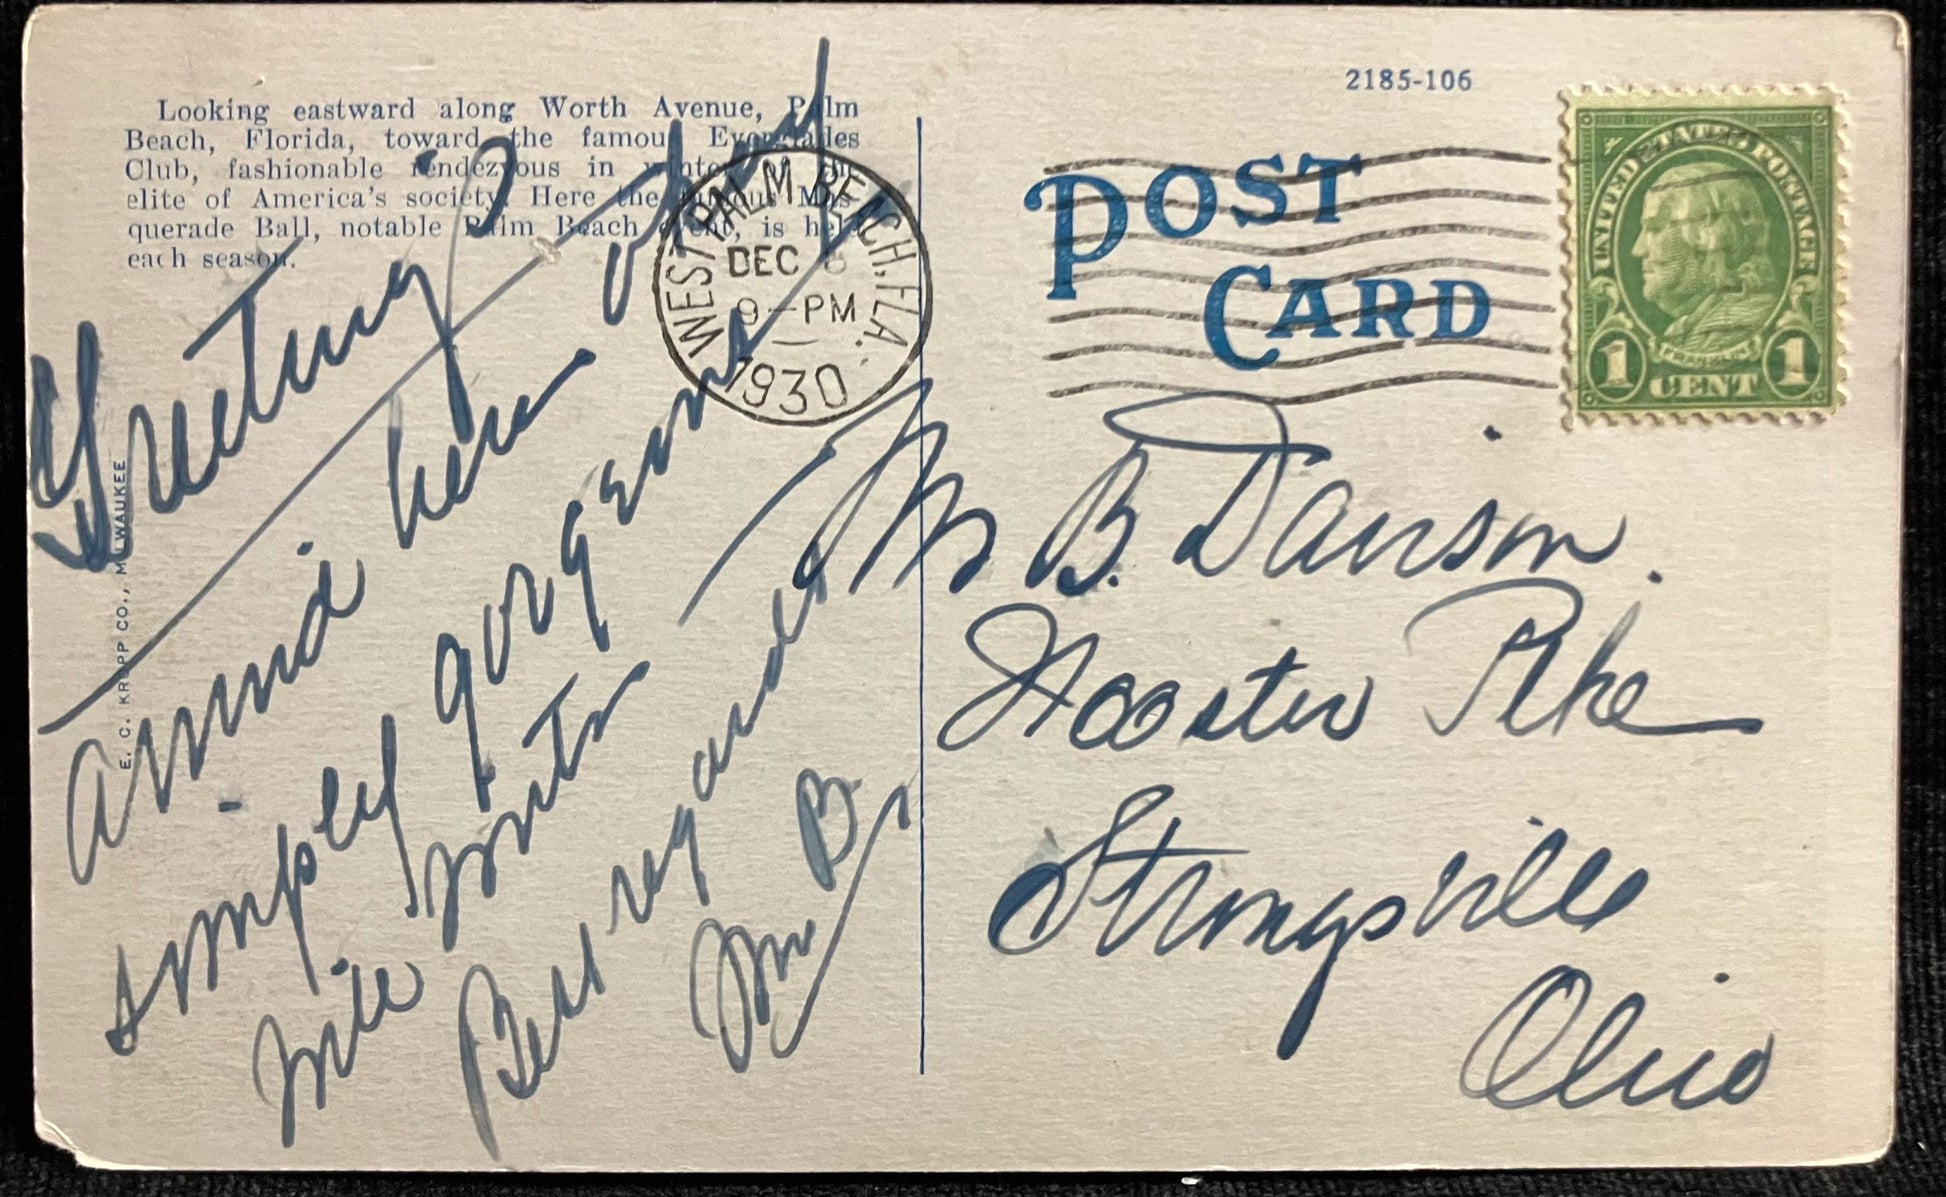 Looking eastward along Worth Avenue, Palm
Beach, Florida, toward the famous Everglades
Club, fashionable rendezvous in winter of the
elite of America's society. Here the famous Mas-
querade Ball, notable Palm Beach event, is held
each season.
E. C. KROPP CO., MILWAUKEE
Greetings
Arrived here and
simply gorgeous
will write
Best regards
Mr B.
WEST PALM BEACH, FLA.
DEC
9-PM
1930
2185-106
POST
CARD
UNITED STATES POSTAGE
FRANKLIN
1 CENT 1
Mr B. Davison.
Wooster Pike
Strongsville
Ohio